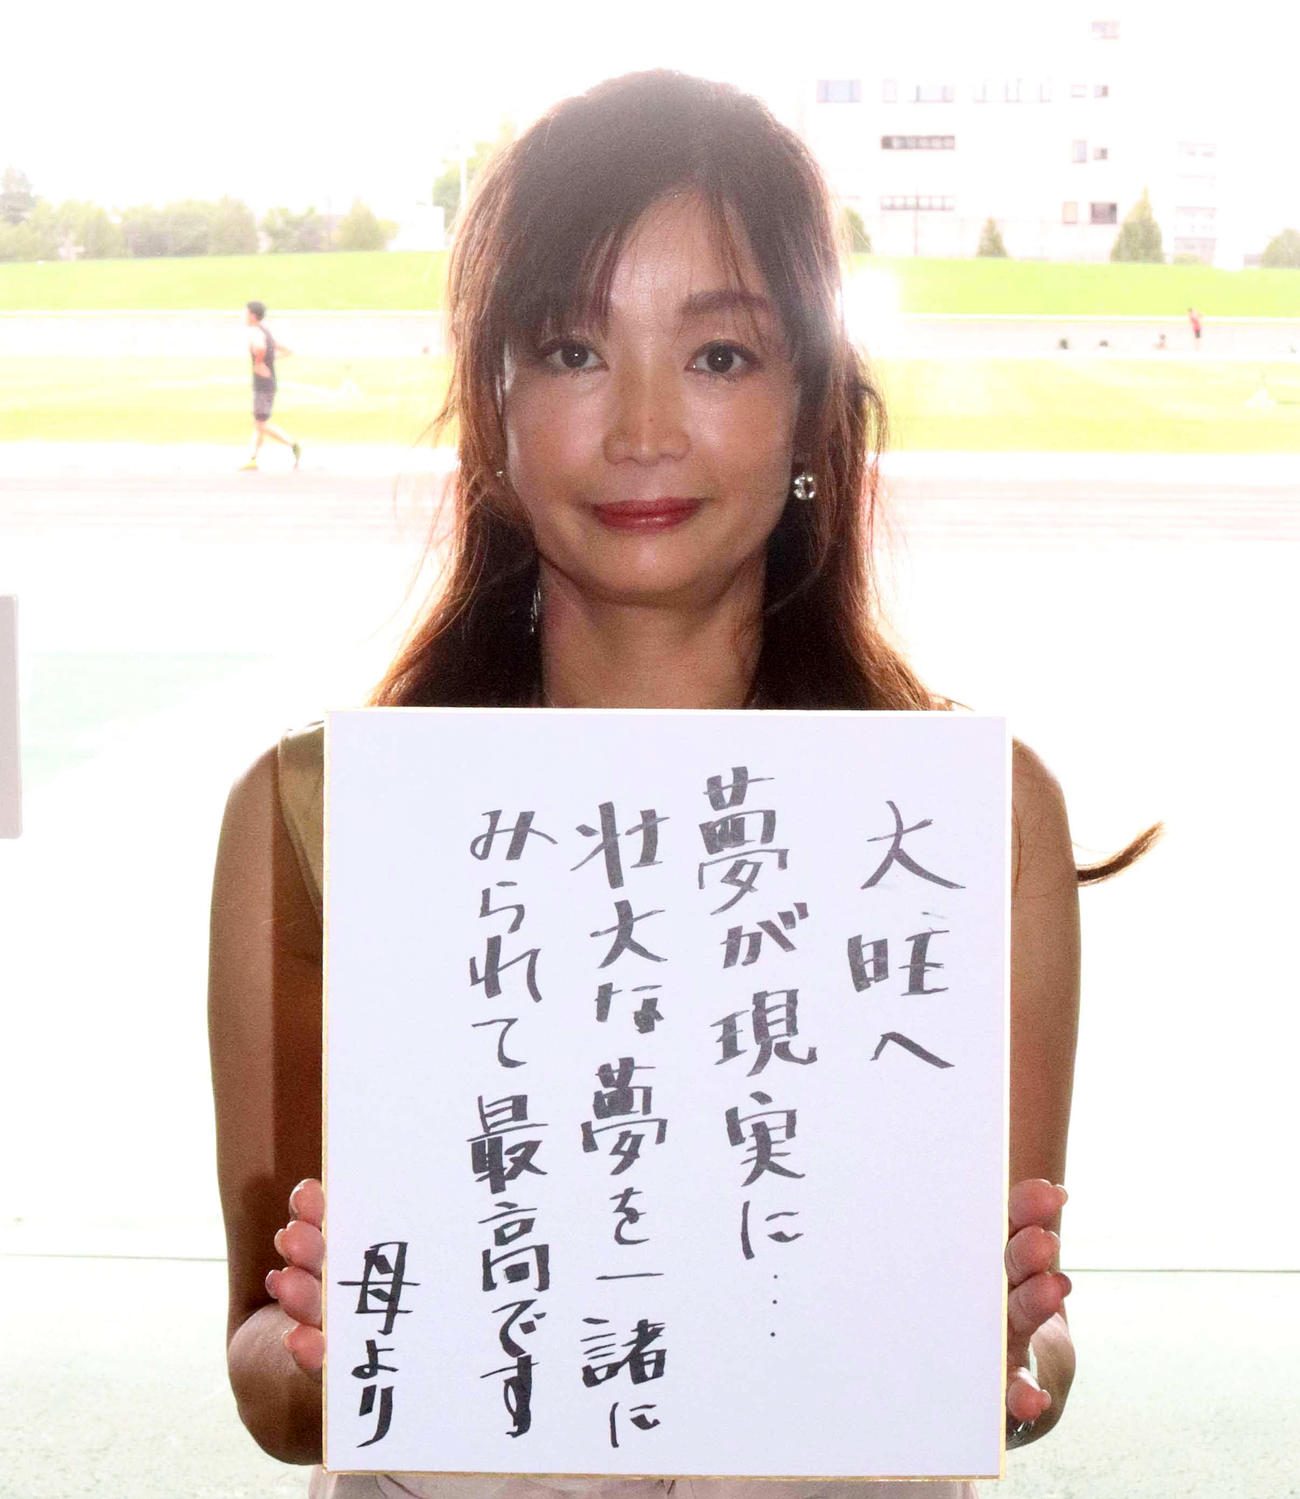 大旺へ
夢が現実に…
壮大な夢を一諸に
みられて最高です
母より